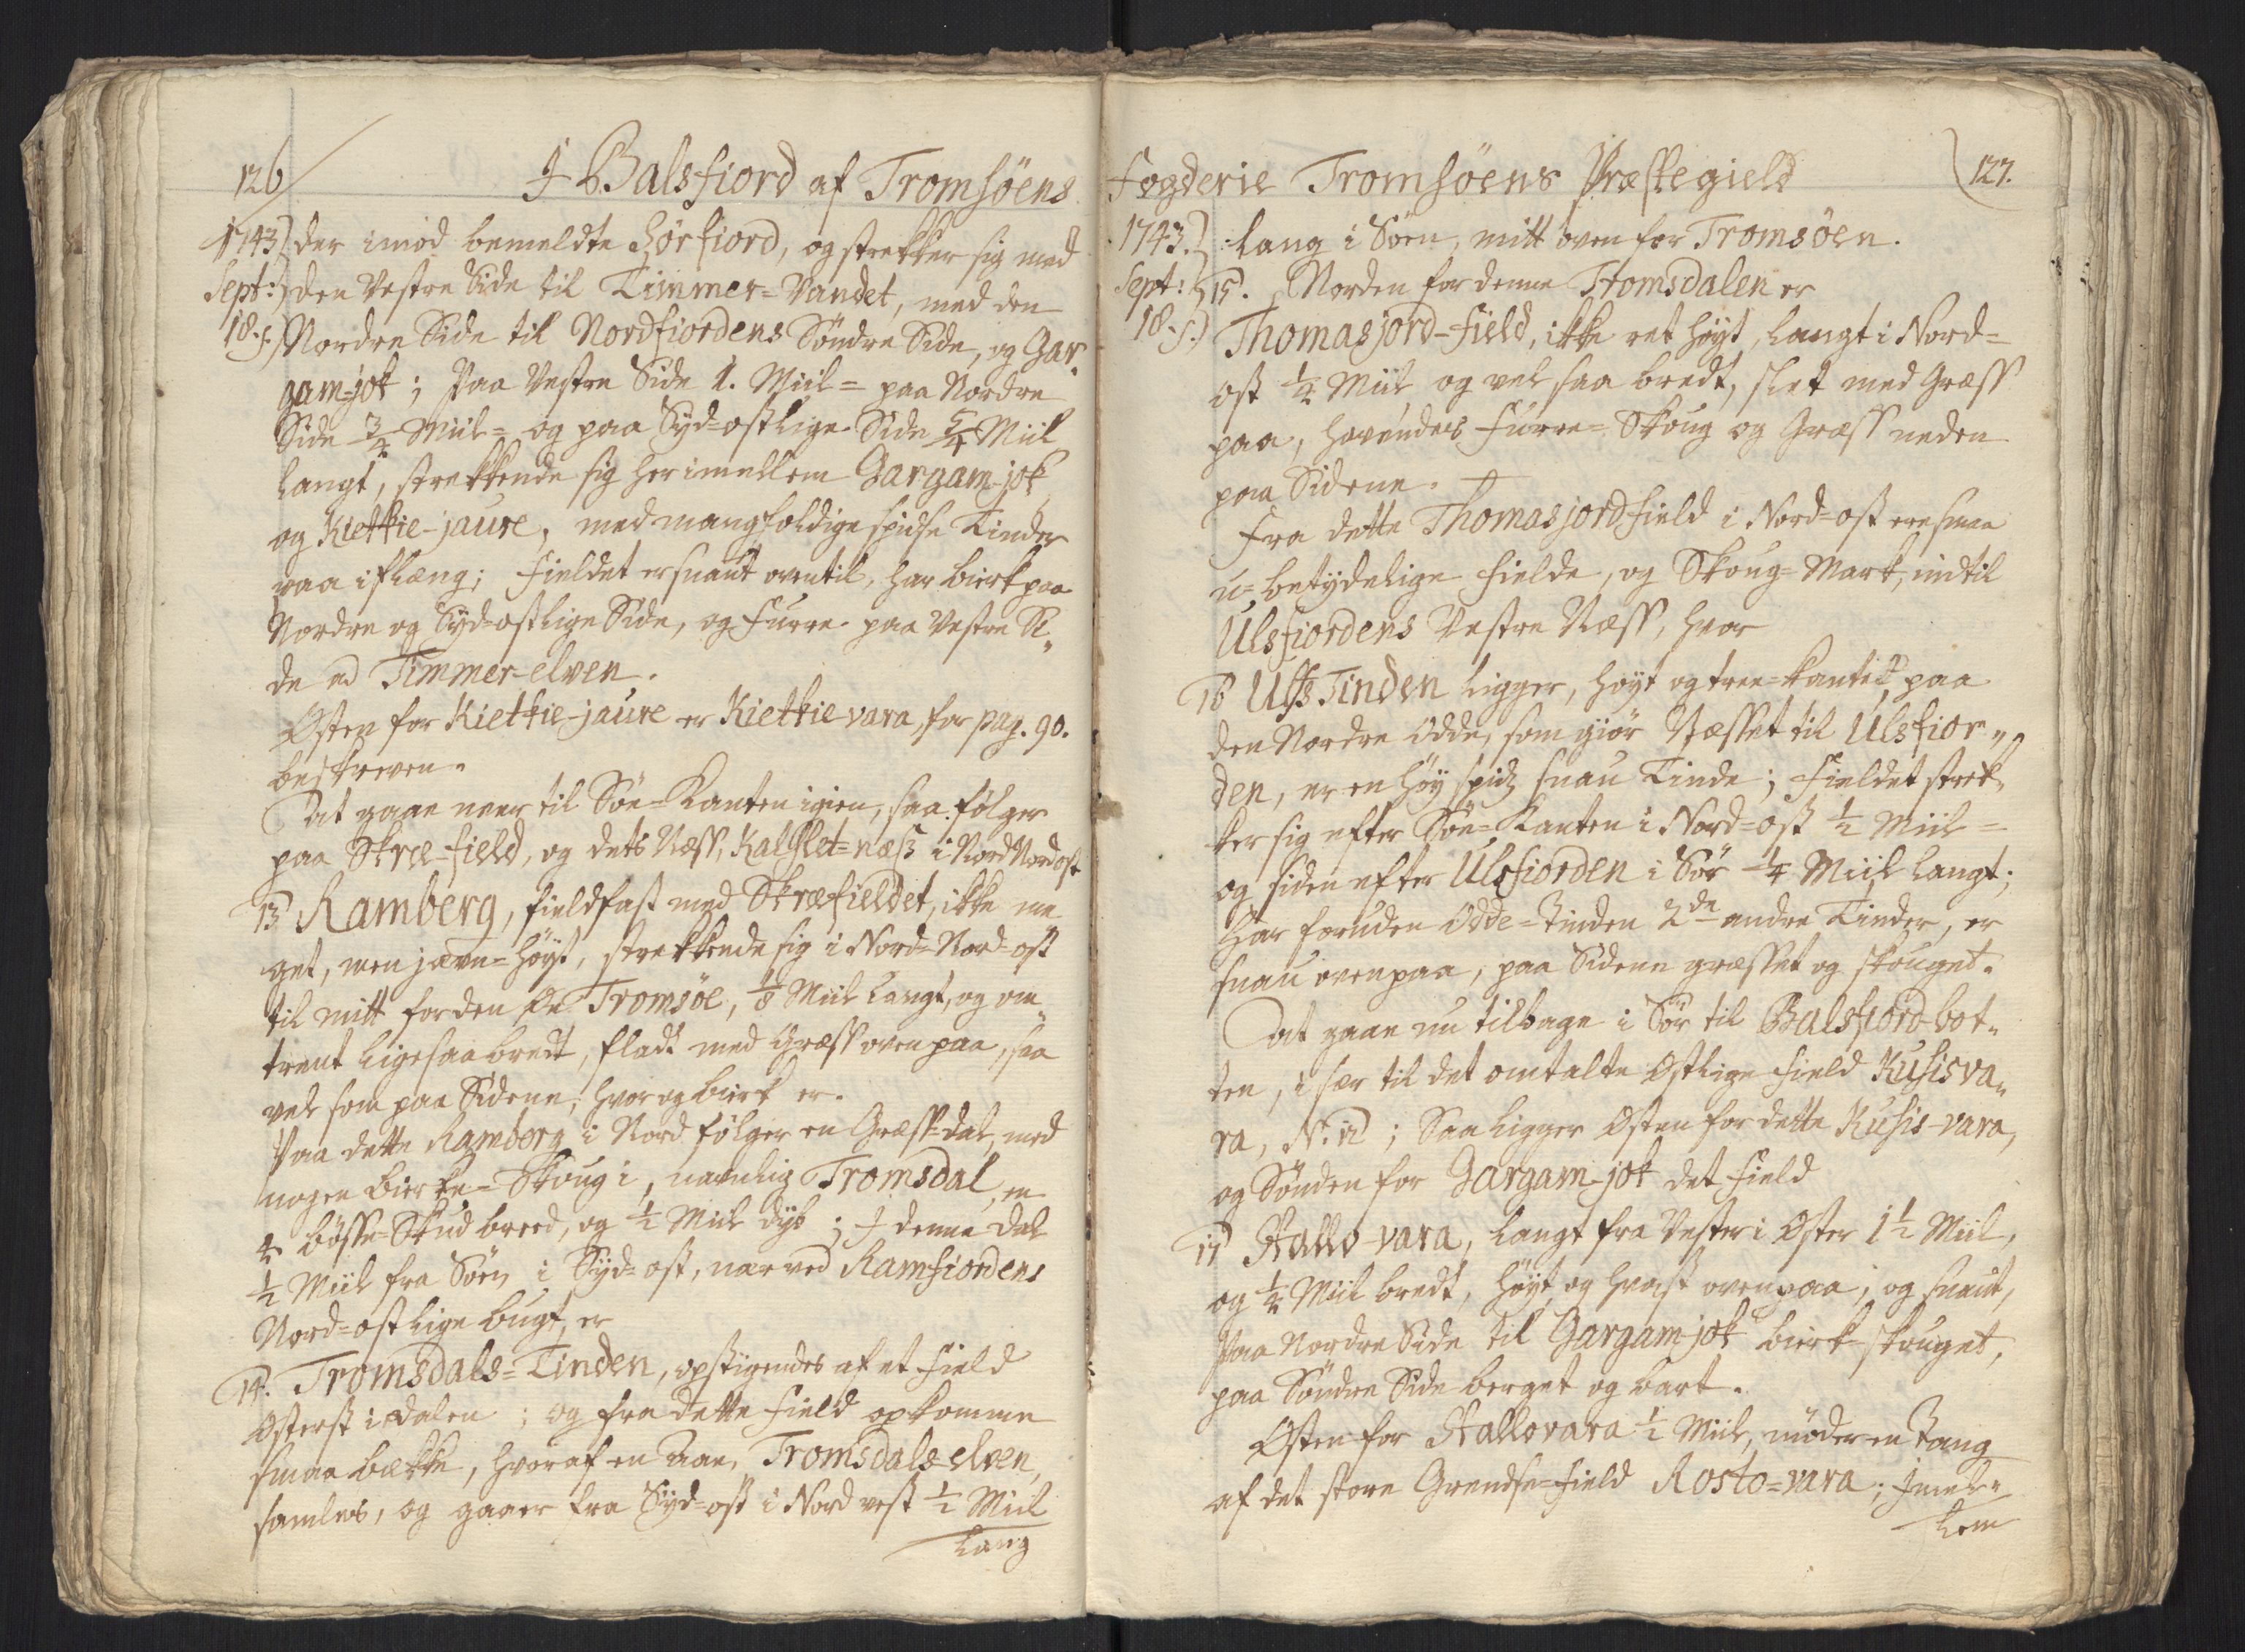 126
I Balsfiord af Tromsöens
1743 der imod bemeldte Sörfiord, og strekker sig med
Sept: den Vestre Side til Timmer=Vandet, med den
18. s. Nordre Side til Nordfiordens Söndre Side, og Gar-
gam-jok; Paa Vestre Side 1. Miil= paa Nordre
Side 3/4 Miil= og paa Syd=ostlige Side 5/4 Miil
langt, strekkende sig her imellem Gargam-jok
og Kietkie-jaure, med mangfoldige spidse Tinder
paa i flæng; Fieldet er snaut oventil, har birk paa
Nordre og Syd=ostlige Side, og Furre paa Vestre Si„
de ved Timmer-elven.
Osten for Kietkie-jaure er Kietkie-vara, for pag. 90.
beskreven.
At gaae neer til Söe-Kanten igien, saa følger
paa Skræ-field, og dets Næss, Kalslet=næss i Nord Nordost
13 Ramberg, fieldfast med Skræfieldet, ikke me
get, men jævn=höyt, strekkende sig i Nord=Nord=ost
til mitt for den Öe Tromsöe, 1/8 Miil langt, og om„
trent ligesaa bredt, fladt med Græss oven paa, saa
vel som paa Sidene, hvor og birk er.
Paa dette Ramberg i Nord følger en Græss=dal, med
nogen birke=Skoug i, navnlig Tromsdal, en
4 bösse=Skud breed, og 1/2 Miil dyb; I denne dal
1/2 Miil fra Söen i Syd=ost, nær ved Ramfiordens
Nord=ostlige bugt, er
14. Tromsdals=Tinden, opstigendes af et Field
Osterst i dalen; og fra dette Field opkomme
smaa bække, hvoraf en Aae, Tromsdals-elven,
samles, og gaaer fra Syd=ost i Nordvest 1/2 Miil
lang
Fogderie Tromsöens Præstegield
127.
1743. lang i Söen, mitt oven for Tromsöen.
Sept: 15. Norden for denne Tromsdalen er
18. s. Thomasjord-field, ikke ret höyt, langt i Nord=
ost 1/4 Miil og vel saa bredt, slet med Græss
paa, havendes Furre=Skoug og Græss neden
paa Sidene.
Fra dette Thomasjordfield i Nord=ost ere smaa
u=betydelige Fielde, og Skoug=Mark, indtil
Ulsfiordens Vestre Næss, hvor
16 Ulfs Tinden ligger, höyt og tree=kantet, paa
den Nordre Odde, som giör Næsset til Ulsfior„
den, er en höy spidz snau Tinde; Fieldet strek„
ker sig efter Söe=Kanten i Nord=ost 1/2 Miil=
og siden efter Ulsfiorden i Sör 1/4 Miil langt;
Har foruden Odde=Tinden 2de andre Tinder, er
snau oven paa, paa Sidene græsset og skouget.
At gaae nu tilbage i Sör til Balsfiord-bot„
ten, i sær til det omtalte Ostlige Field Kusisva„
ra, No. 12; Saa ligger Osten for dette Kusis-vara,
og Sönden for Gargam-jok det Field
17 Hallo-vara, langt fra Vester i Oster 1 1/2 Miil,
og 1/4 Miil bredt, höyt og hvast oven paa, og snaut,
Paa Nordre Side til Gargam-jok birk-skouget,
paa Söndre Side berget og bart.
Osten for Hallovara 1/2 Miil, möder en Tang
af det store Grendse=Field Rosto=vara; Imel„
lem